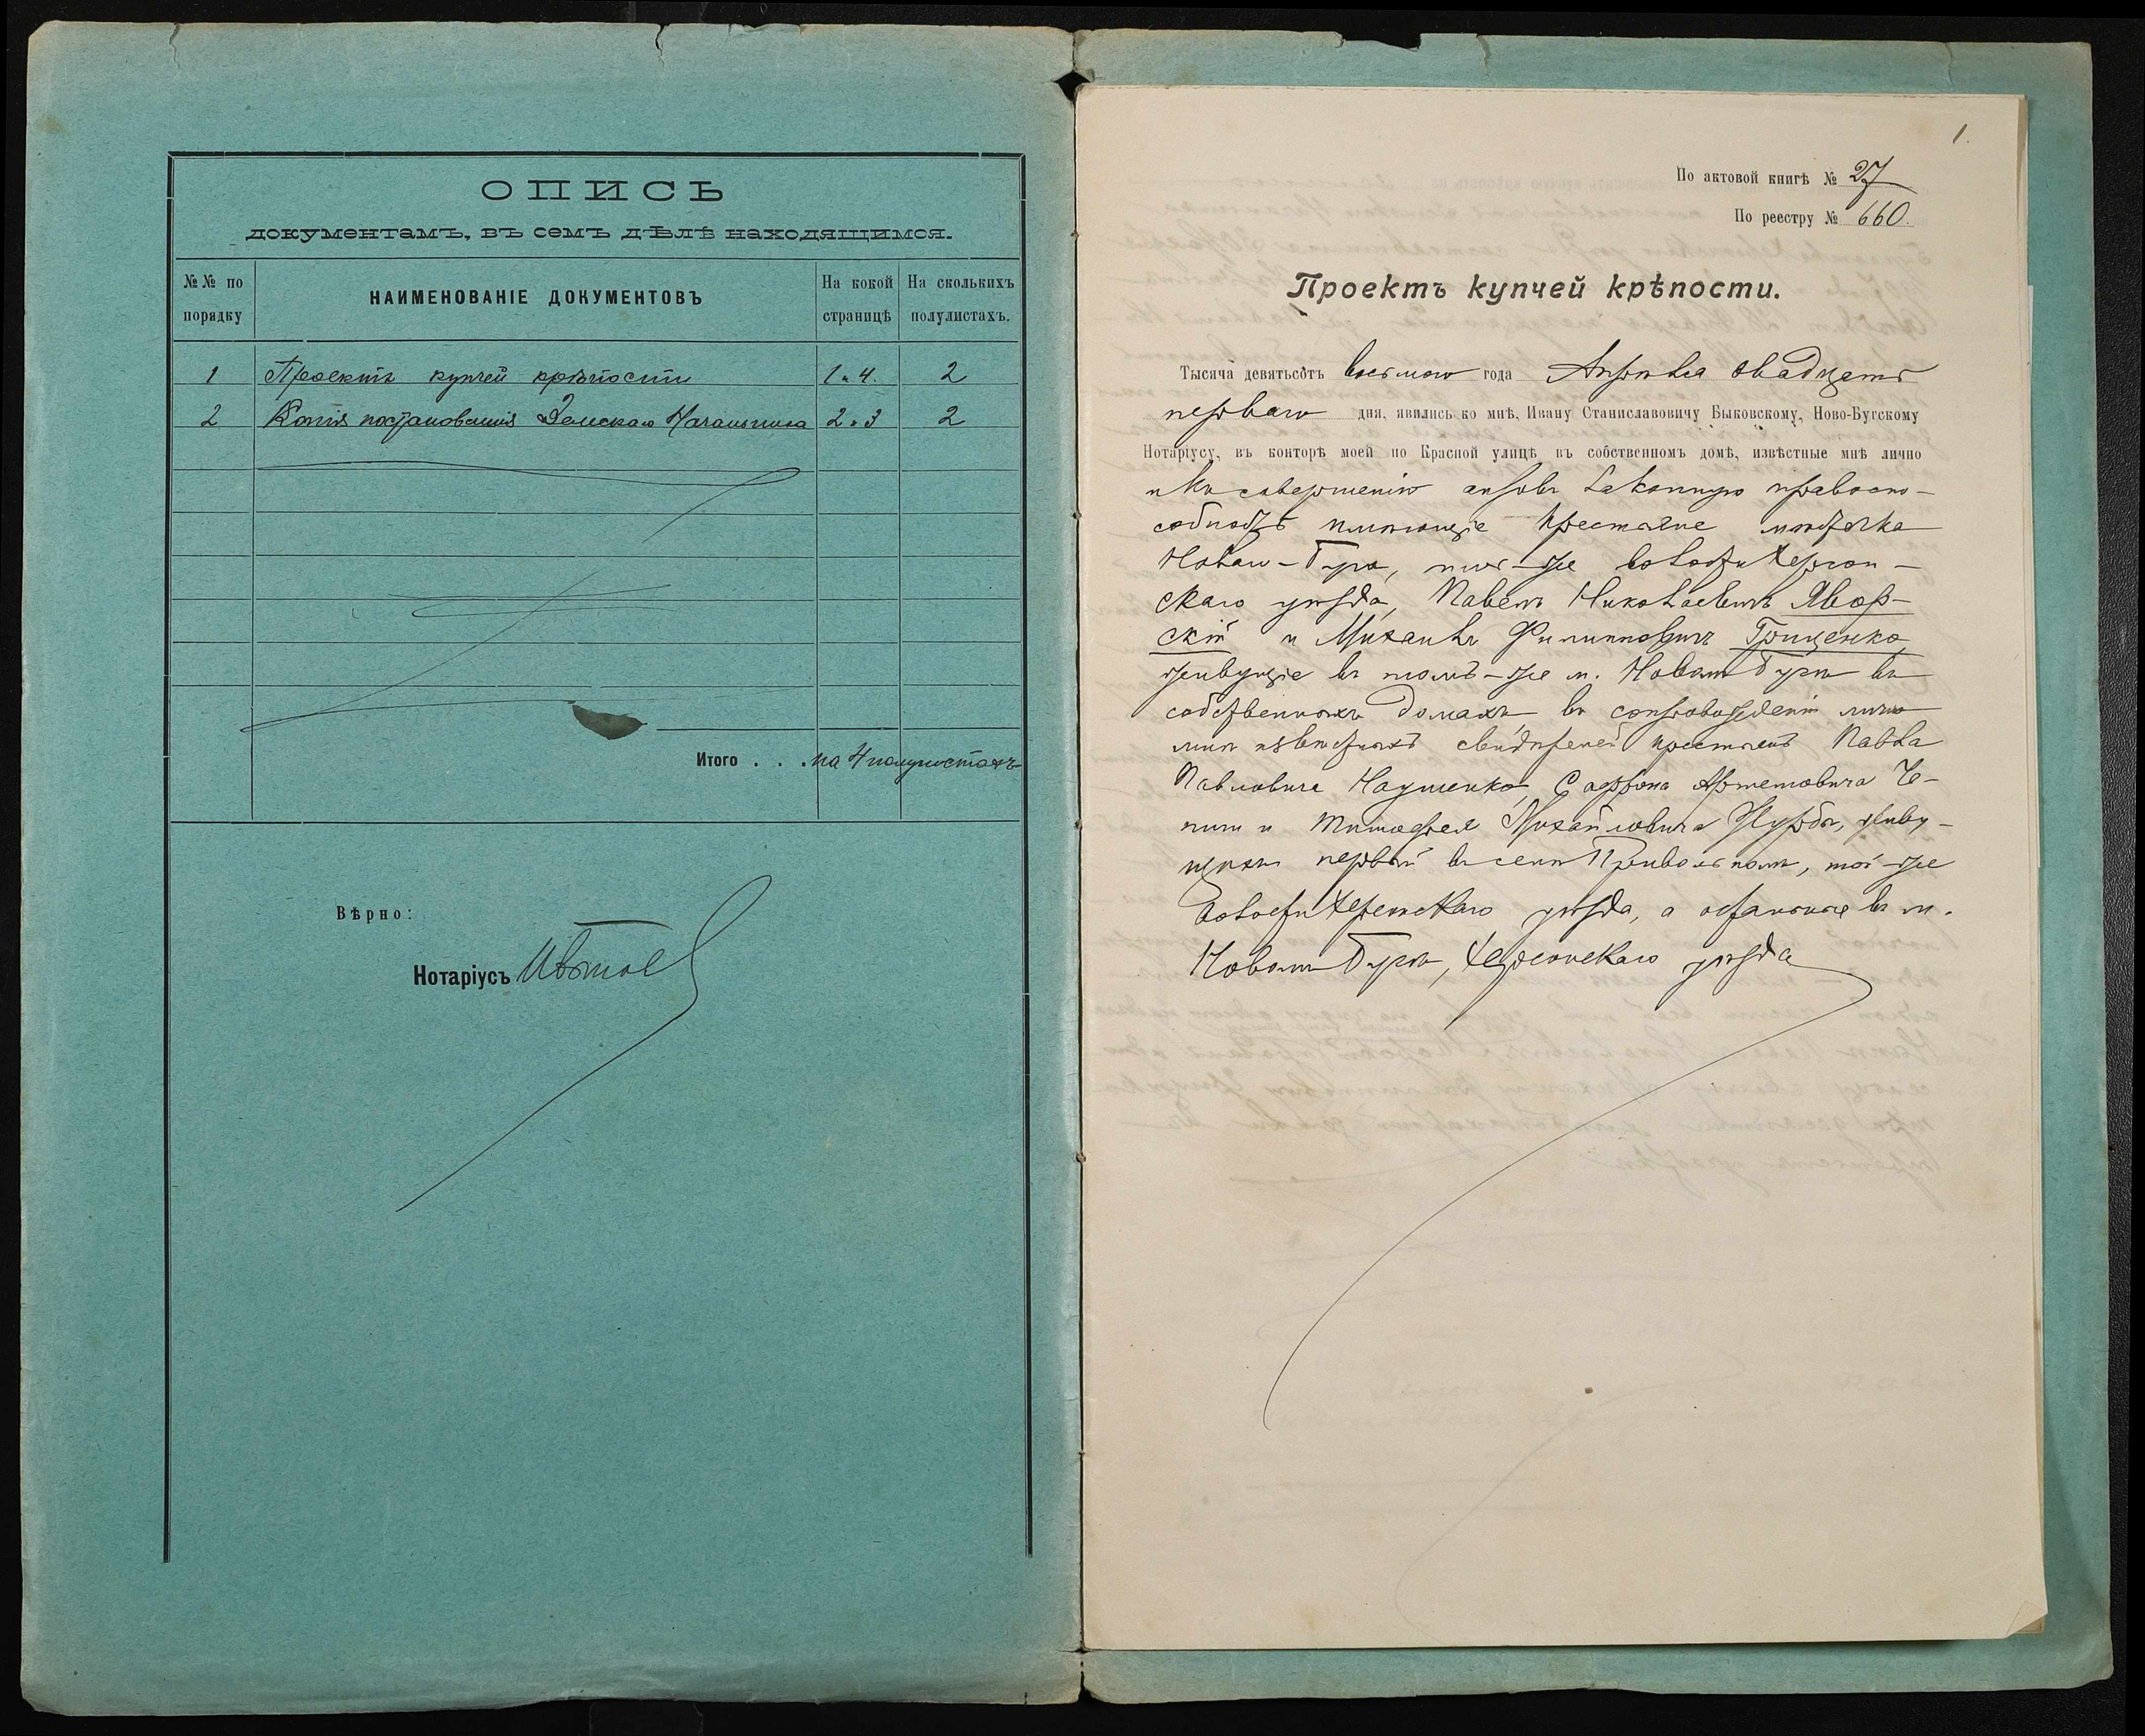 ОПИСЬ
документамъ, въ семъ дѣлѣ находящимся.
№№ по порядку
НАИМЕНОВАНІЕ ДОКУМЕНТОВЪ
На кокой страницѣ
На сколькихъ полулистахъ.
1 Проектъ купчей крѣпости 1 и 4. 2
2 Копія постановленія Земскаго Начальника 2 и 3 2
Итого . . . на 4 полулистахъ
Вѣрно:
Нотаріусъ
1.
По актовой книгѣ № 27
По реестру № 660.
Проектъ купчей крѣпости.
Тысяча девятьсотъ восьмого года Апрѣля двадцать
перваго дня, явились ко мнѣ, Ивану Станиславовичу Быковскому, Ново-Бугскому
Нотаріусу, въ конторѣ моей по Красной улицѣ въ собственномъ домѣ, извѣстные мнѣ лично
и къ совершенію актовъ законную правоспо-
собность имѣющіе крестьяне мѣстечка
Новаго-Буга, той-же волости Херсон-
скаго уѣзда, Павелъ Николаевичъ Явор-
скій и Михаилъ Филипповичъ Грищенко,
живущіе въ томъ-же м. Новомъ Бугѣ въ
собственныхъ домахъ, въ сопровожденіи лично
мнѣ извѣстныхъ свидѣтелей крестьянъ Павла
Павловича Науменко, Софрона Артемовича Че-
и Тимофея Михайловича живу-
щихъ первый въ селѣ Привольномъ, той-же
волости Херсонскаго уѣзда, а остальные въ м.
Новомъ Бугѣ, Херсонскаго уѣзда